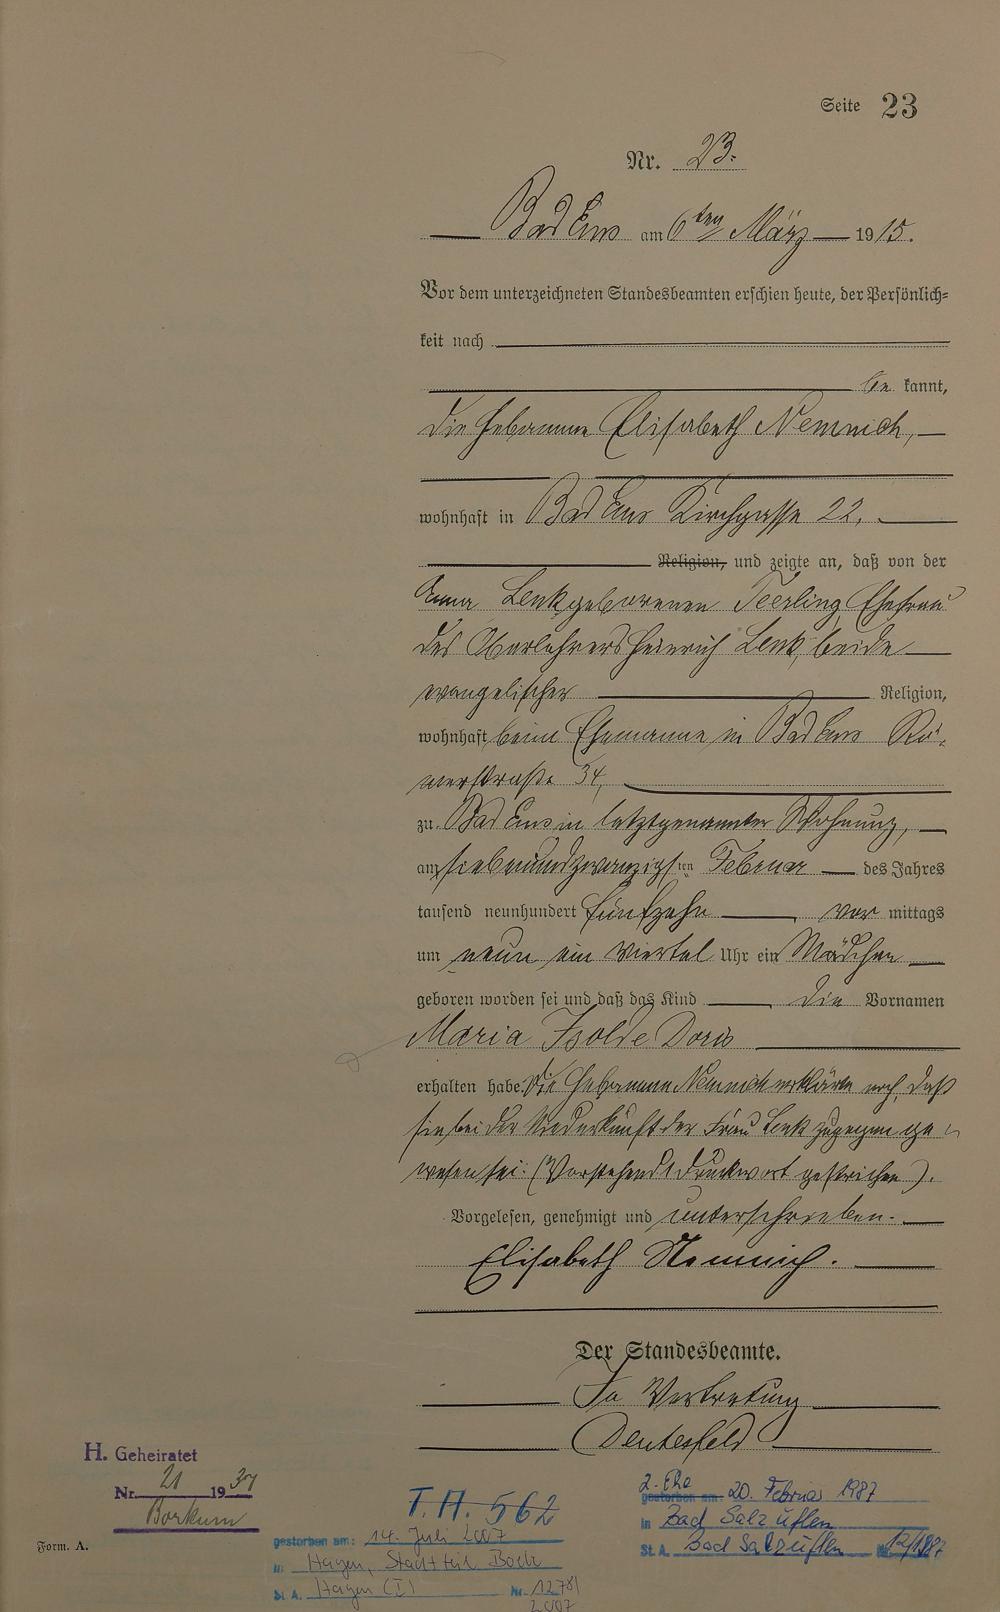 Seite 23
Nr. 23.
Bad Ems am 6ten März 1915.
Vor dem unterzeichneten Standesbeamten erschien heute, der Persönlich=
keit nach
be kannt,
die Hebamme Elisabeth Nemnich,
wohnhaft in Bad Ems Kirchgasse 22,
Religion, und zeigte an, daß von der
Anna Lenk geborenen Teerling, Ehefrau
des Oberlehrers Heinrich Lenk, beide
evangelischer Religion,
wohnhaft beim Ehemanne in Bad Ems Rö=
merstraße 34,
zu Bad Ems in letztgenannter Wohnung,
am siebenundzwanzigsten Februar des Jahres
tausend neunhundert fünfzehn vor mittags
um neun ein viertel Uhr ein Mädchen
geboren worden sei und daß das Kind die Vornamen
Maria Isolde Doris
erhalten habe. Die Hebamme Nemnich erklärte noch, daß
sie bei der Niederkunft der Frau Lenk zugegen ge=
wesen sei. (Vorstehend 1 Druckwort gestrichen).
Vorgelesen, genehmigt und unterschrieben.
Elisabeth Nemnich.
Der Standesbeamte.
In Vertretung
H. Geheiratet
Nr. 21 1937
Borkum
Form. A.
T.A. 562
gestorben am: 14. Juli 2007
in Hagen, Stadtteil
St. A. Hagen (I) Nr. 1278/
2007
2. Ehe
gestorben am: 20. Februar 1987
in Bad Salzuflen
St. A. Bad Salzuflen Nr. 12/1987